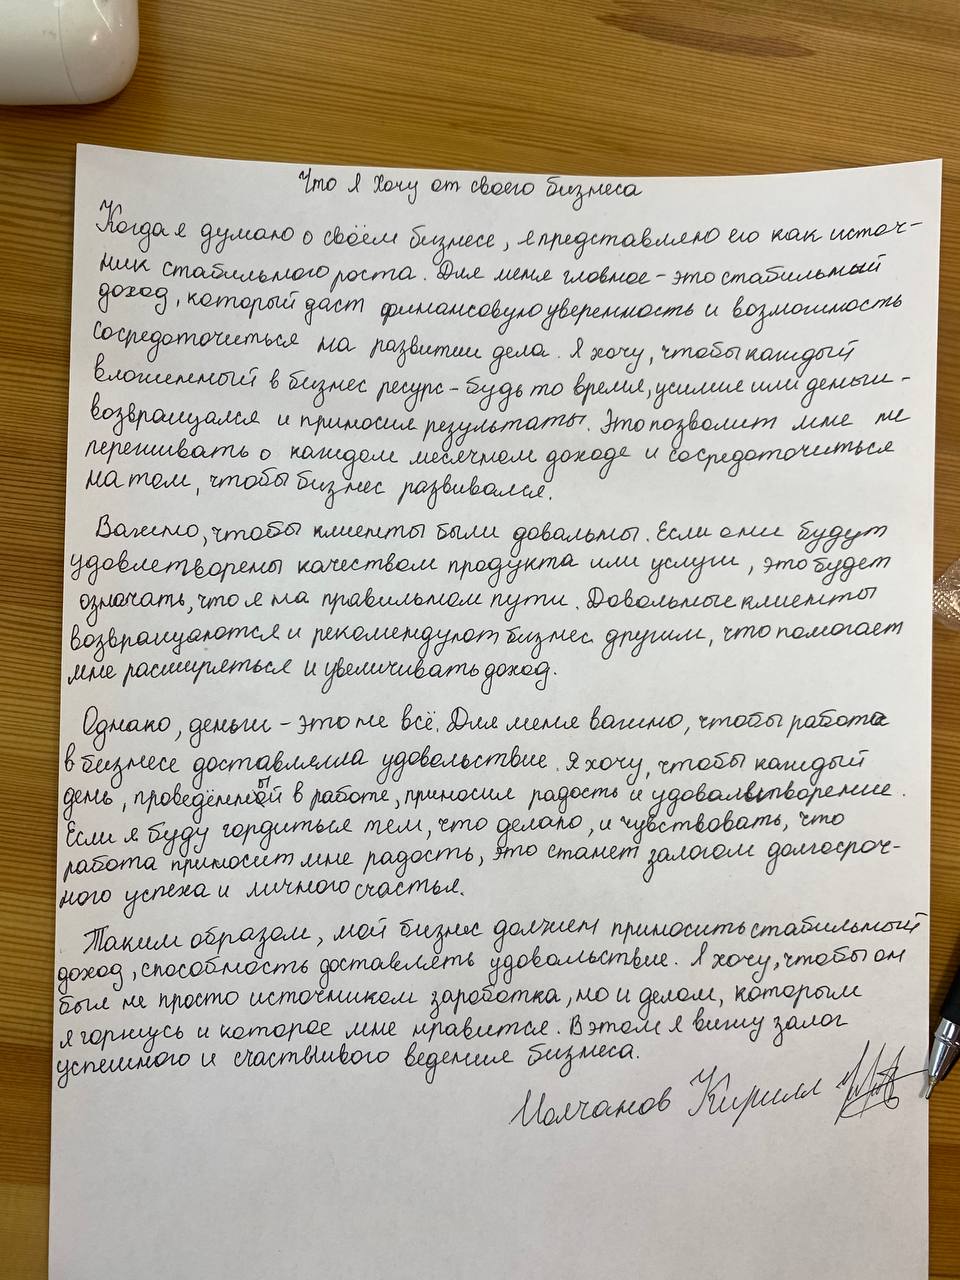 Что я хочу от своего бизнеса
Когда я думаю о своём бизнесе, я представляю его как источ-
ник стабильного роста. Для меня главное - это стабильный
доход, который даст финансовую уверенность и возможность
сосредоточиться на развитии дела. Я хочу, чтобы каждый
вложенный в бизнес ресурс - будь то время, усилие или деньги -
возвращался и приносил результаты. Это позволит мне не
переживать о каждом месячном доходе и сосредоточиться
на том, чтобы бизнес развивался.
Важно, чтобы клиенты были довольны. Если они будут
удовлетворены качеством продукта или услуги, это будет
означать, что я на правильном пути. Довольные клиенты
возвращаются и рекомендуют бизнес другим, что помогает
мне расширяться и увеличивать доход.
Однако, деньги - это не всё. Для меня важно, чтобы работа
в бизнесе доставляла удовольствие. Я хочу, чтобы каждый
день, проведённый в работе, приносил радость и удовалетворение.
Если я буду гордиться тем, что делаю, и чувствовать, что
работа приносит мне радость, это станет залогом долгосроч-
ного успеха и личного счастья.
Таким образом, мой бизнес должен приносить стабильный
доход, способность доставлять удовольствие. Я хочу, чтобы он
был не просто источником заработка, но и делом, которым
я горжусь и которое мне нравится. В этом я вижу залог
успешного и счастливого ведения бизнеса.
Молчанов Кирилл